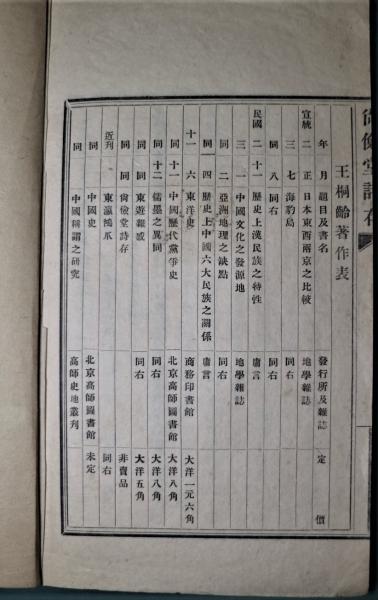 尚儉堂詩存
王桐齡著作表
年 月 題目及書名 發行所及雜誌 定 價
宣統 二 正 日本東西兩京之比較 地學雜誌
三 七 海豹島 同右
同 八 同右 同右
民國 二 十一 歷史上漢民族之特性 庸言
三 一 中國文化之發源地 地學雜誌
同 二 亞洲地理之缺點 同右
同 四 歷史上中國六大民族之關係 庸言
十一 六 東洋史 商務印書館 大洋一元六角
同 十一 中國歷代黨爭史 北京高師圖書館 大洋八角
同 十二 儒墨之異同 同右 大洋八角
同 同 東遊雜感 同右 大洋五角
同 同 尚儉堂詩存 非賣品
近刊 東瀛鴻爪 同右
同 中國史 北京高師圖書館 未定
同 中國稱謂之研究 高師史地叢刊